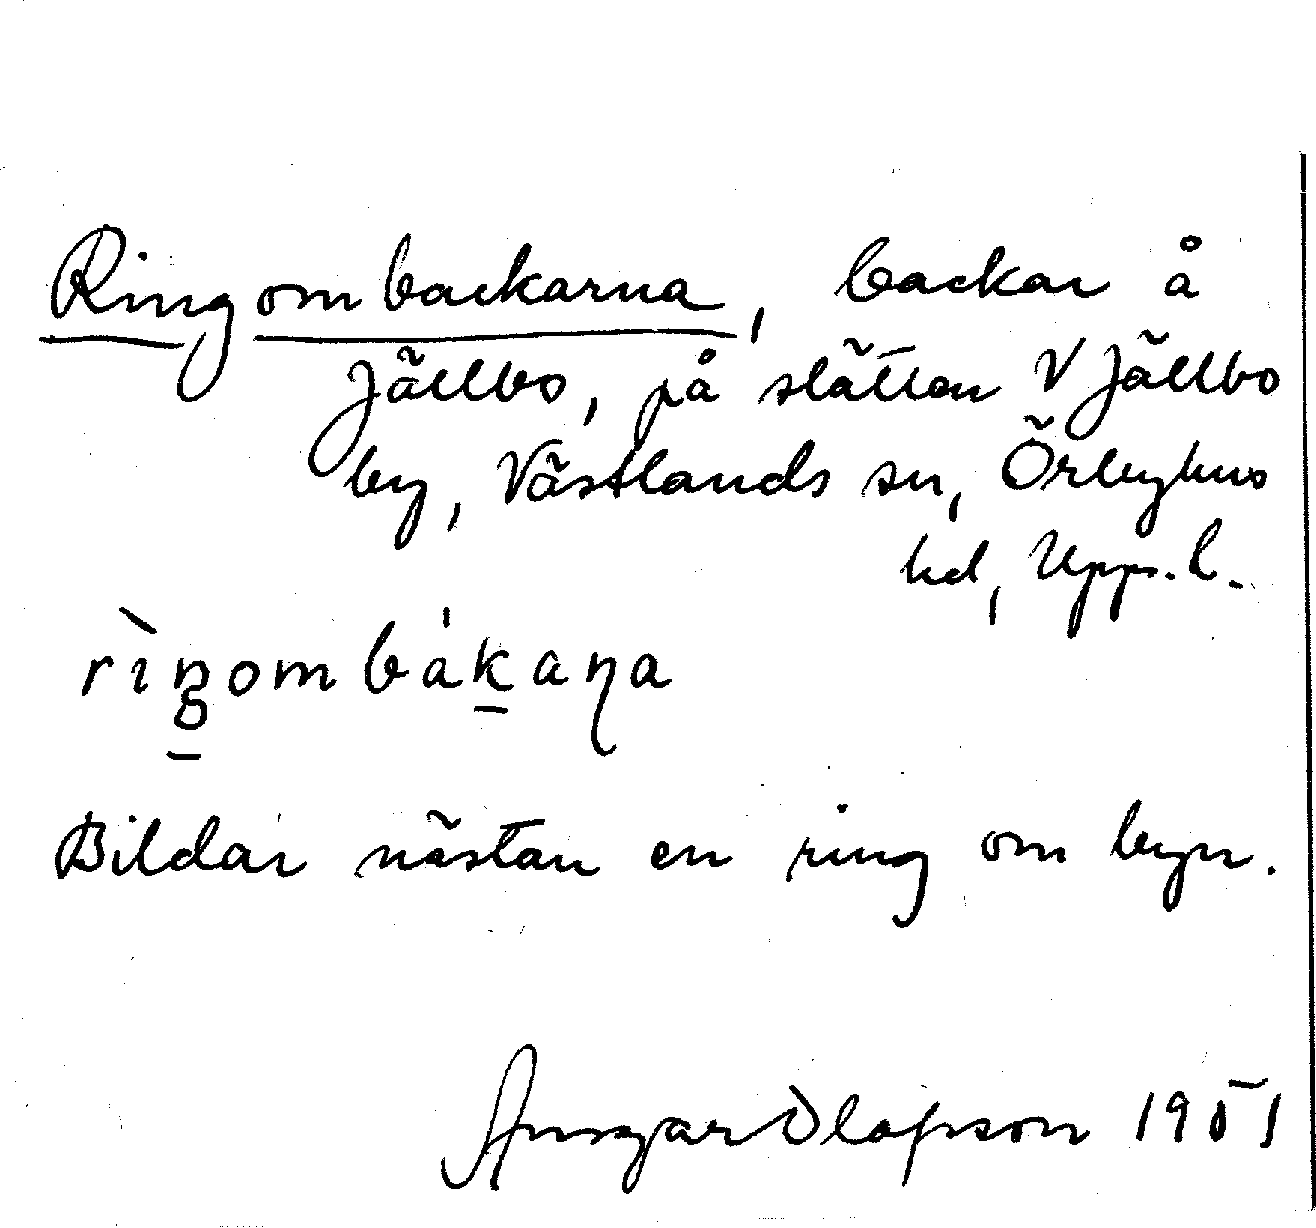 Ringombackarna, backar å
Jällbo, på slätten V Jällbo
by, Västlands sn, Örbyhus
hd, Upps. l.
rìŋombákaɳa
Bildar nästan en ring om byn.
Ansgar Olafson 1951